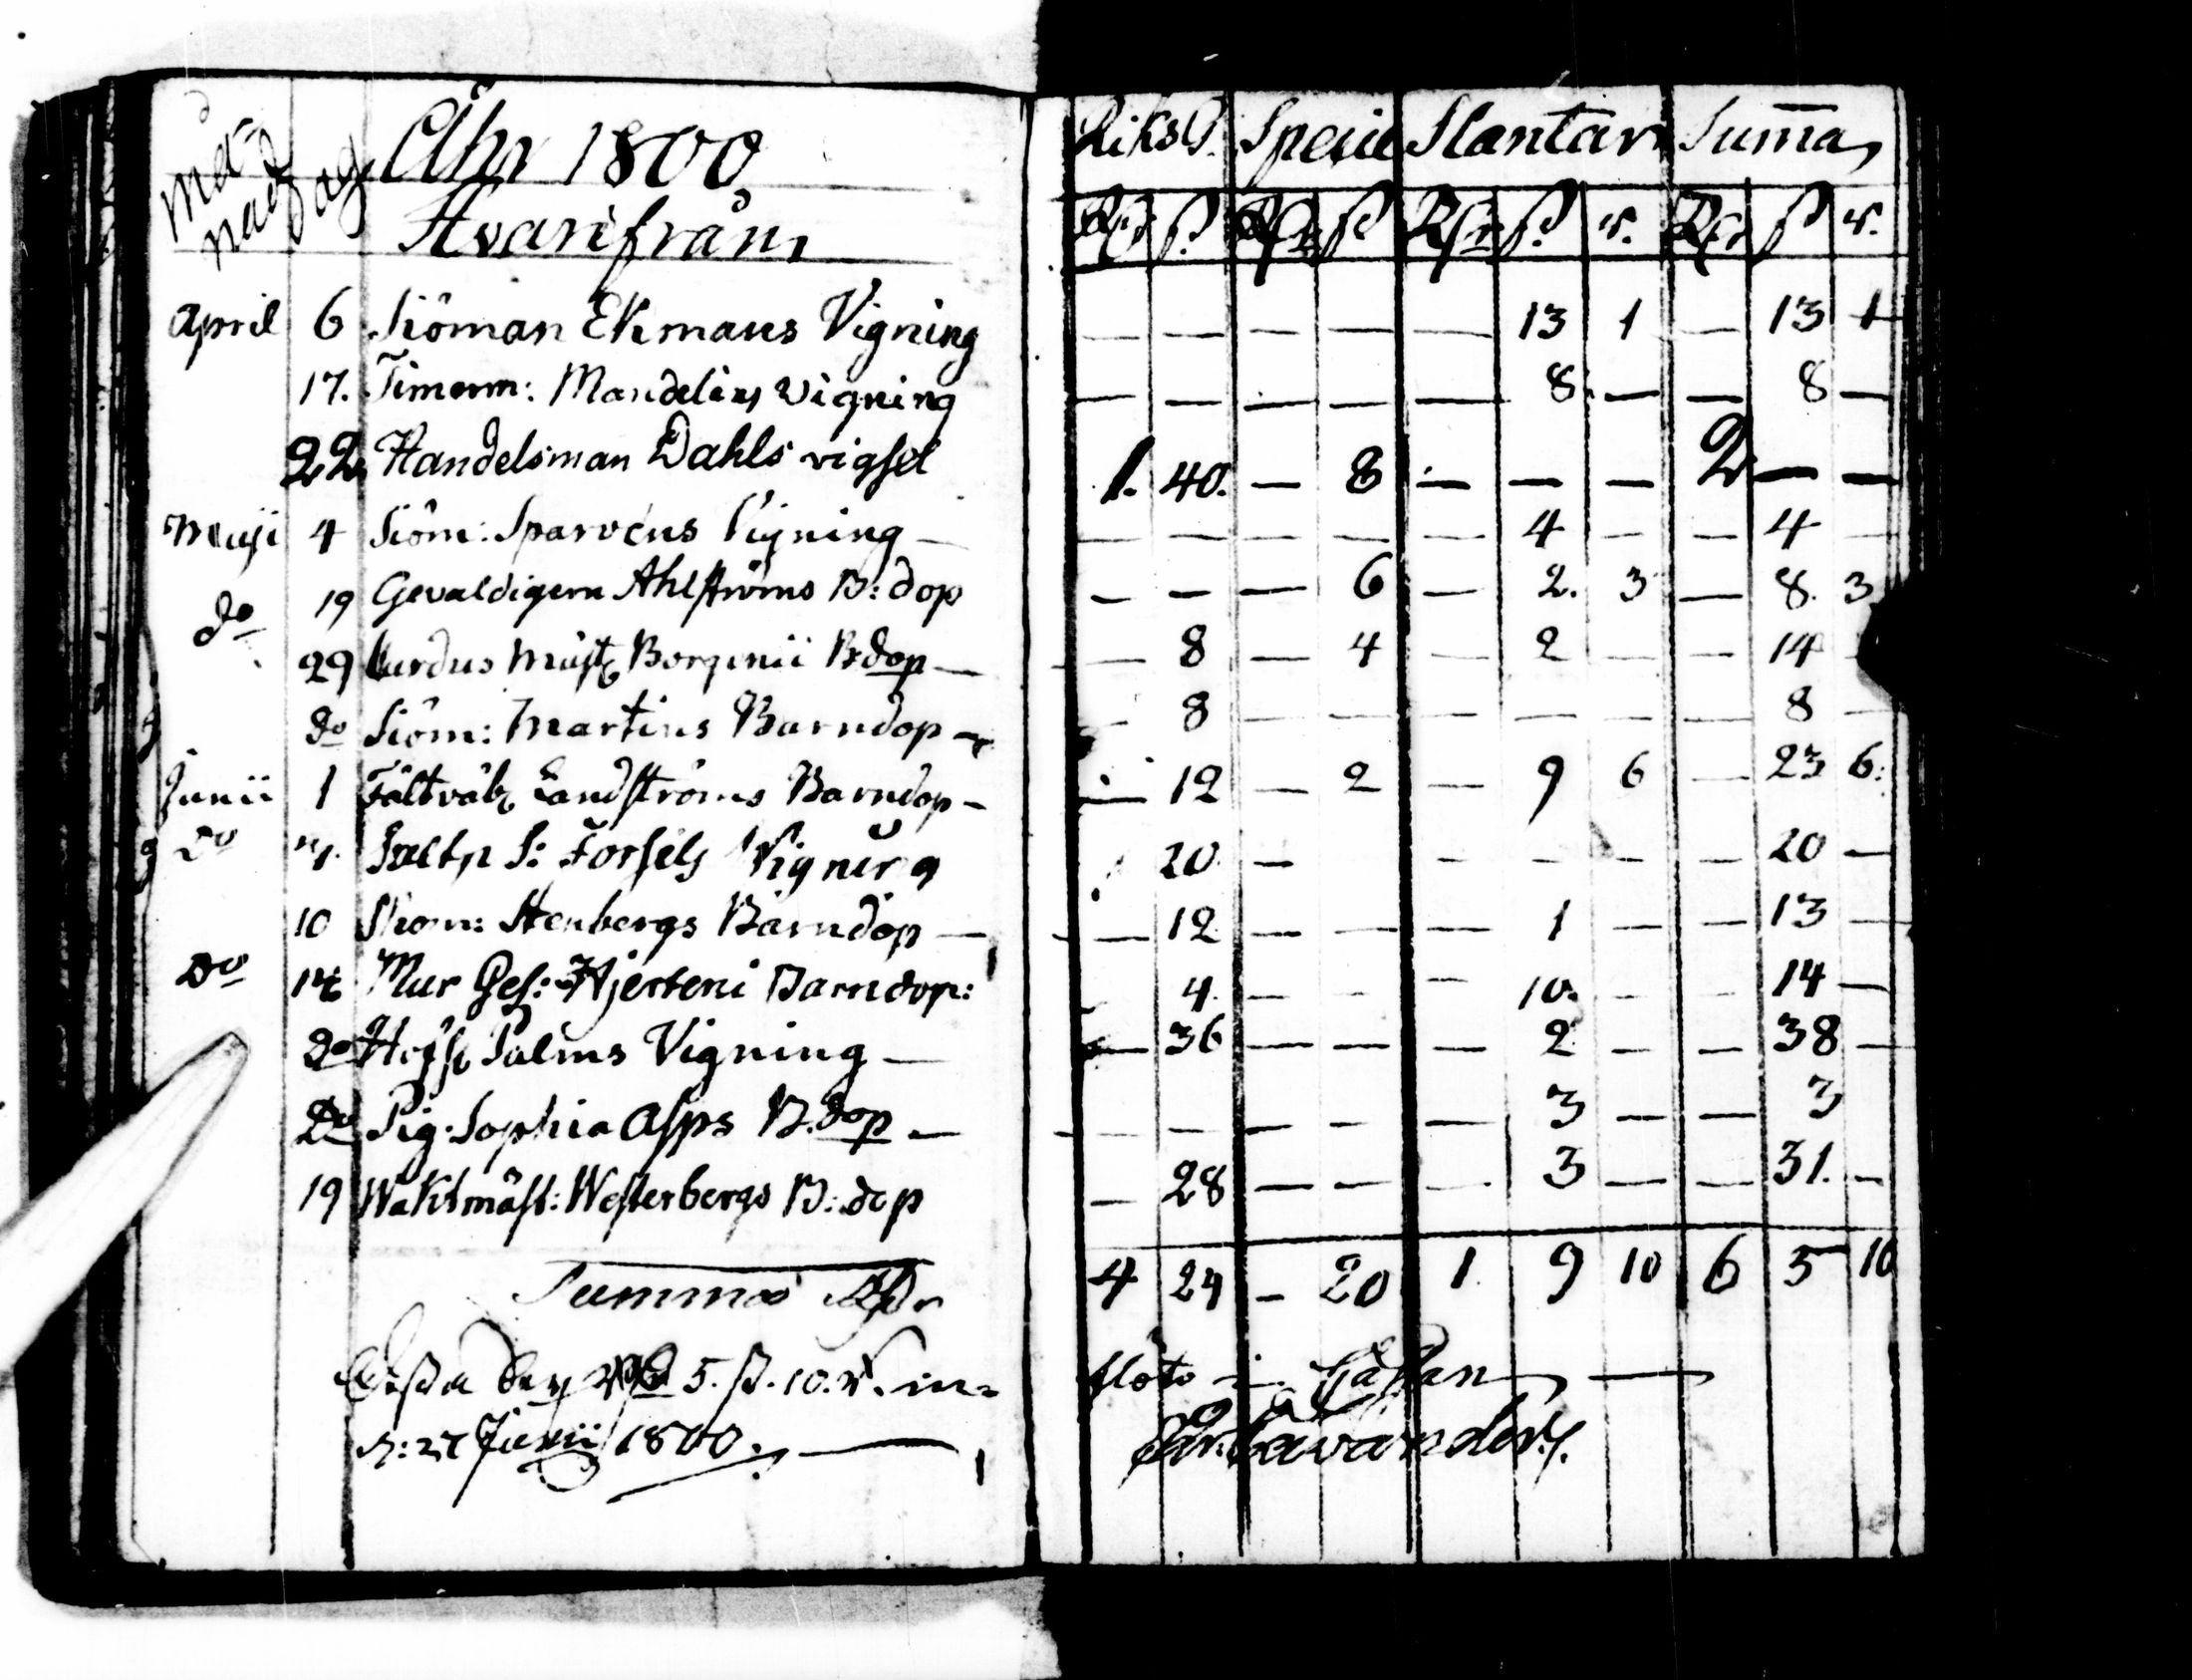 Månad Dag Åhr 1800 RiksG. Specie Slantar Sum̅a
Hvarifrån Rdr ß. Rdr ß Rdr ß. r. Rdr ß r.
April 6 Siöman Ekmans Vigning — — — — — 13 1 — 13 1
17. Timerm: Mandelins Vigning — — — — — 8 — — 8 —
22 Handelsman Dahls vigsel 1. 40. — 8 — — — 2 — —
Maji 4 Siöm: Sparvens Vigning — — — — — — 4 — — 4 —
do 19 Gevaldigern Ahlströms B: dop — — — 6 — 2. 3 — 8. 3
29 Murdus Mäst Borgenii B:dop — — 8 — 4 — 2 — — 14
do Siöm: Martins Barndop — — 8 — — — — — — 8 —
Junii 1 Fältväb Landströms Barndop — — 12 — 2 — 9 6 — 23 6:
do 7. S: Forsels Vigning 20 — — — — — 20 —
10 Siöm: Stenbergs Barndop — — 12 — — — 1 — — 13 —
Do 14 Mur Ges: Hjerteni Barndop: 4 — — — 10. — — 14 —
do Hofsl Palms Vigning — — 36 — — — 2 — — 38 —
Do Pig: Sophia Asps B.dop — — — — — — 3 — — 3
19 Waktmäst: Westerbergs B: dop — 28 — — — 3 — — 31. —
Summa Rdr 4 24 — 20 1 9 10 6 5 10
5. ß. 10. r. in- flöto i Cassan —
d: 27 Junii 1800. — Cavander